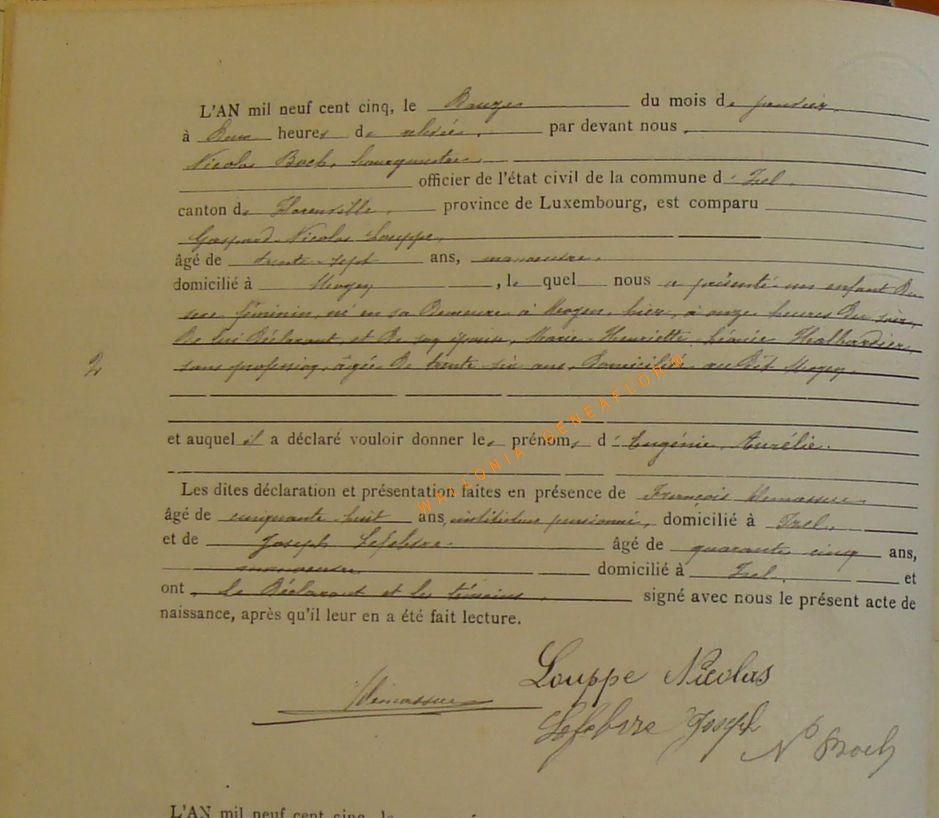 L'AN mil neuf cent cinq, le Douze du mois de janvier
à deux heures de relevée, par devant nous
Nicolas Boch, bourgmestre,
officier de l'état civil de la commune d'Izel,
canton de Florenville, province de Luxembourg, est comparu
Gaspard-Nicolas Louppe,
âgé de trente-sept ans, manoeuvre,
domicilié à Moyen, lequel nous a présenté un enfant du
sexe féminin, né en sa demeure à Moyen, hier, à onze heures du soir,
De lui Déclarant, et De son épouse, Marie-Henriette-Léonie Halbardier,
2 sans profession, âgée De trente six ans, Domiciliée au Dit Moyen,
et auquel il a déclaré vouloir donner les prénoms d'Eugénie, Aurélie.
Les dites déclaration et présentation faites en présence de François
âgé de cinquante huit ans, instituteur pensionné, domicilié à Izel,
et de Joseph Lefebvre âgé de quarante cinq ans,
manoeuvre domicilié à Izel, et
ont, le Déclarant et les témoins, signé avec nous le présent acte de
naissance, après qu'il leur en a été fait lecture.
Louppe Nicolas
Lefebvre Joseph
N Boch
L'AN mil neuf cent cinq, le
WALLONIA GENEAFLORE